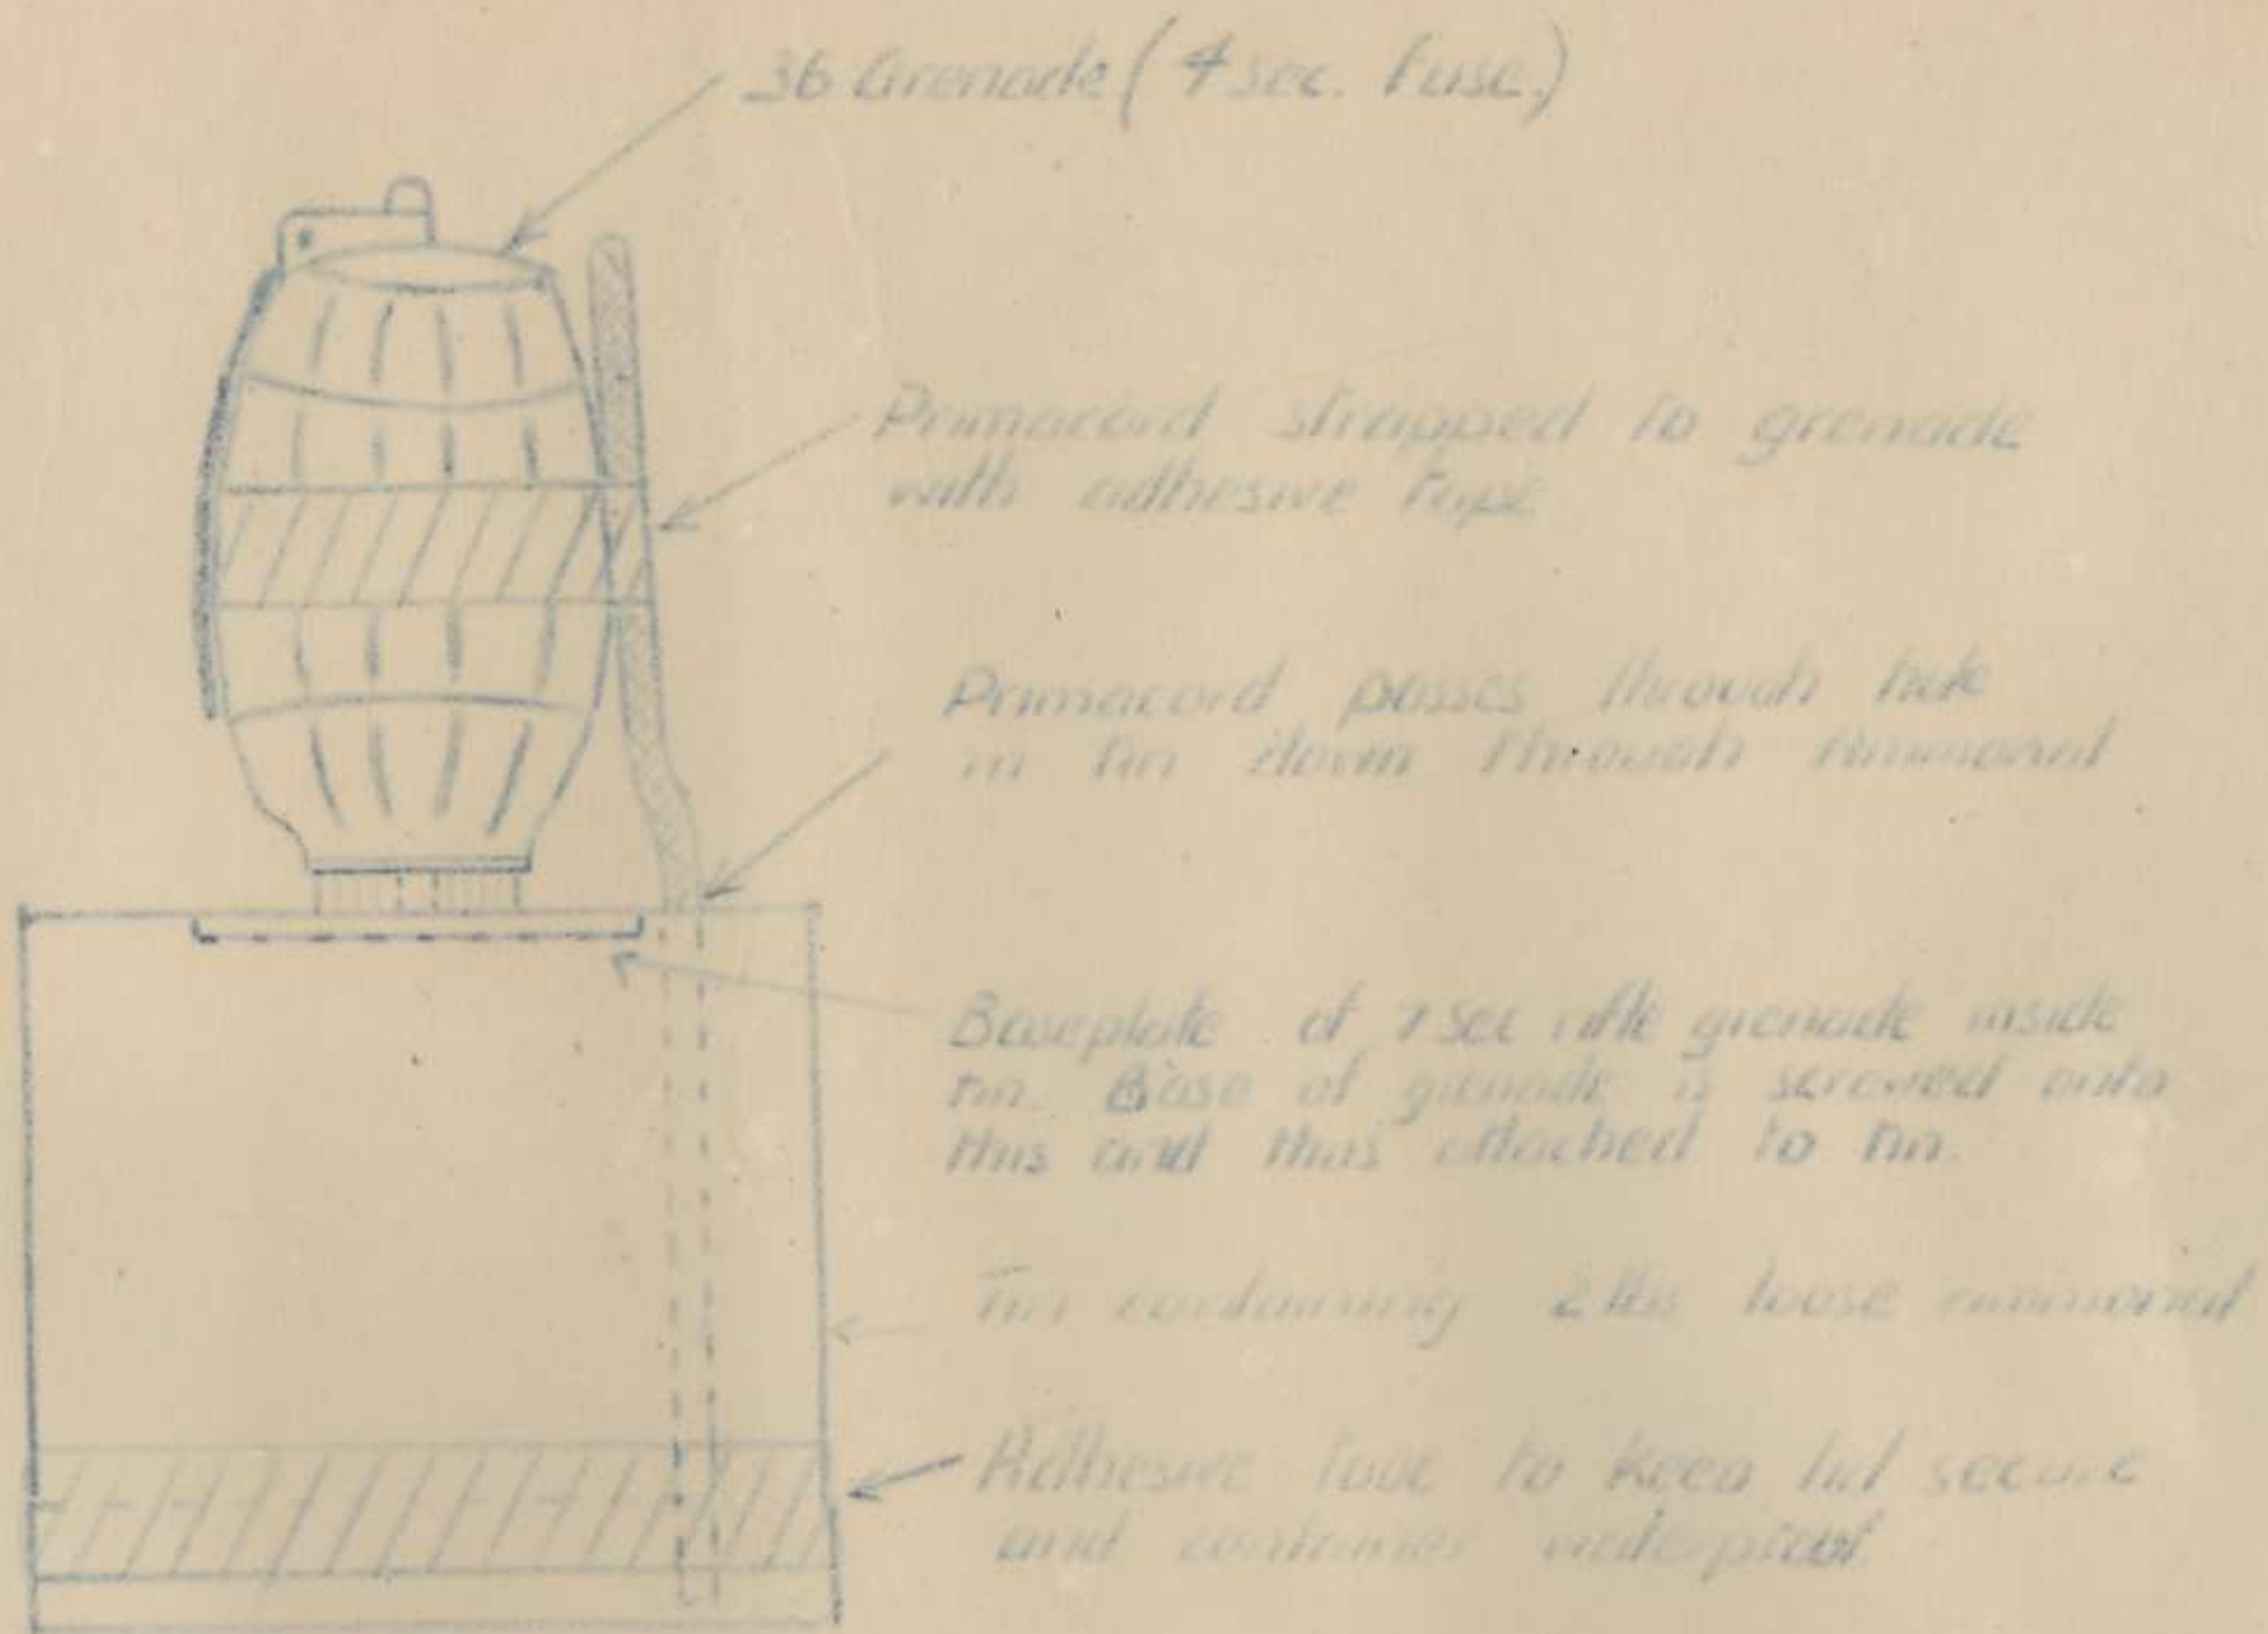 36 Grenade (4 sec. fuse.)
Primacord strapped to grenade
with adhesive tape
Primacord passes through hole
in tin down through Ammonal
Baseplate of 7 sec rifle grenade inside
tin. Base of grenade is screwed onto
this and thus attached to tin.
Tin containing 2 lbs loose ammonal
Adhesive tape to keep lid secure
and container waterproof